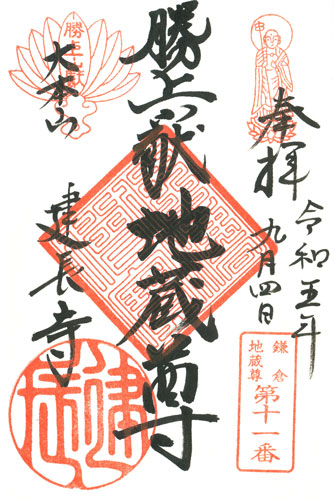 奉拝
令和五年
九月四日
鎌倉
地蔵尊
第十一番
勝上献地蔵尊
勝上嶽
大本山
建長寺